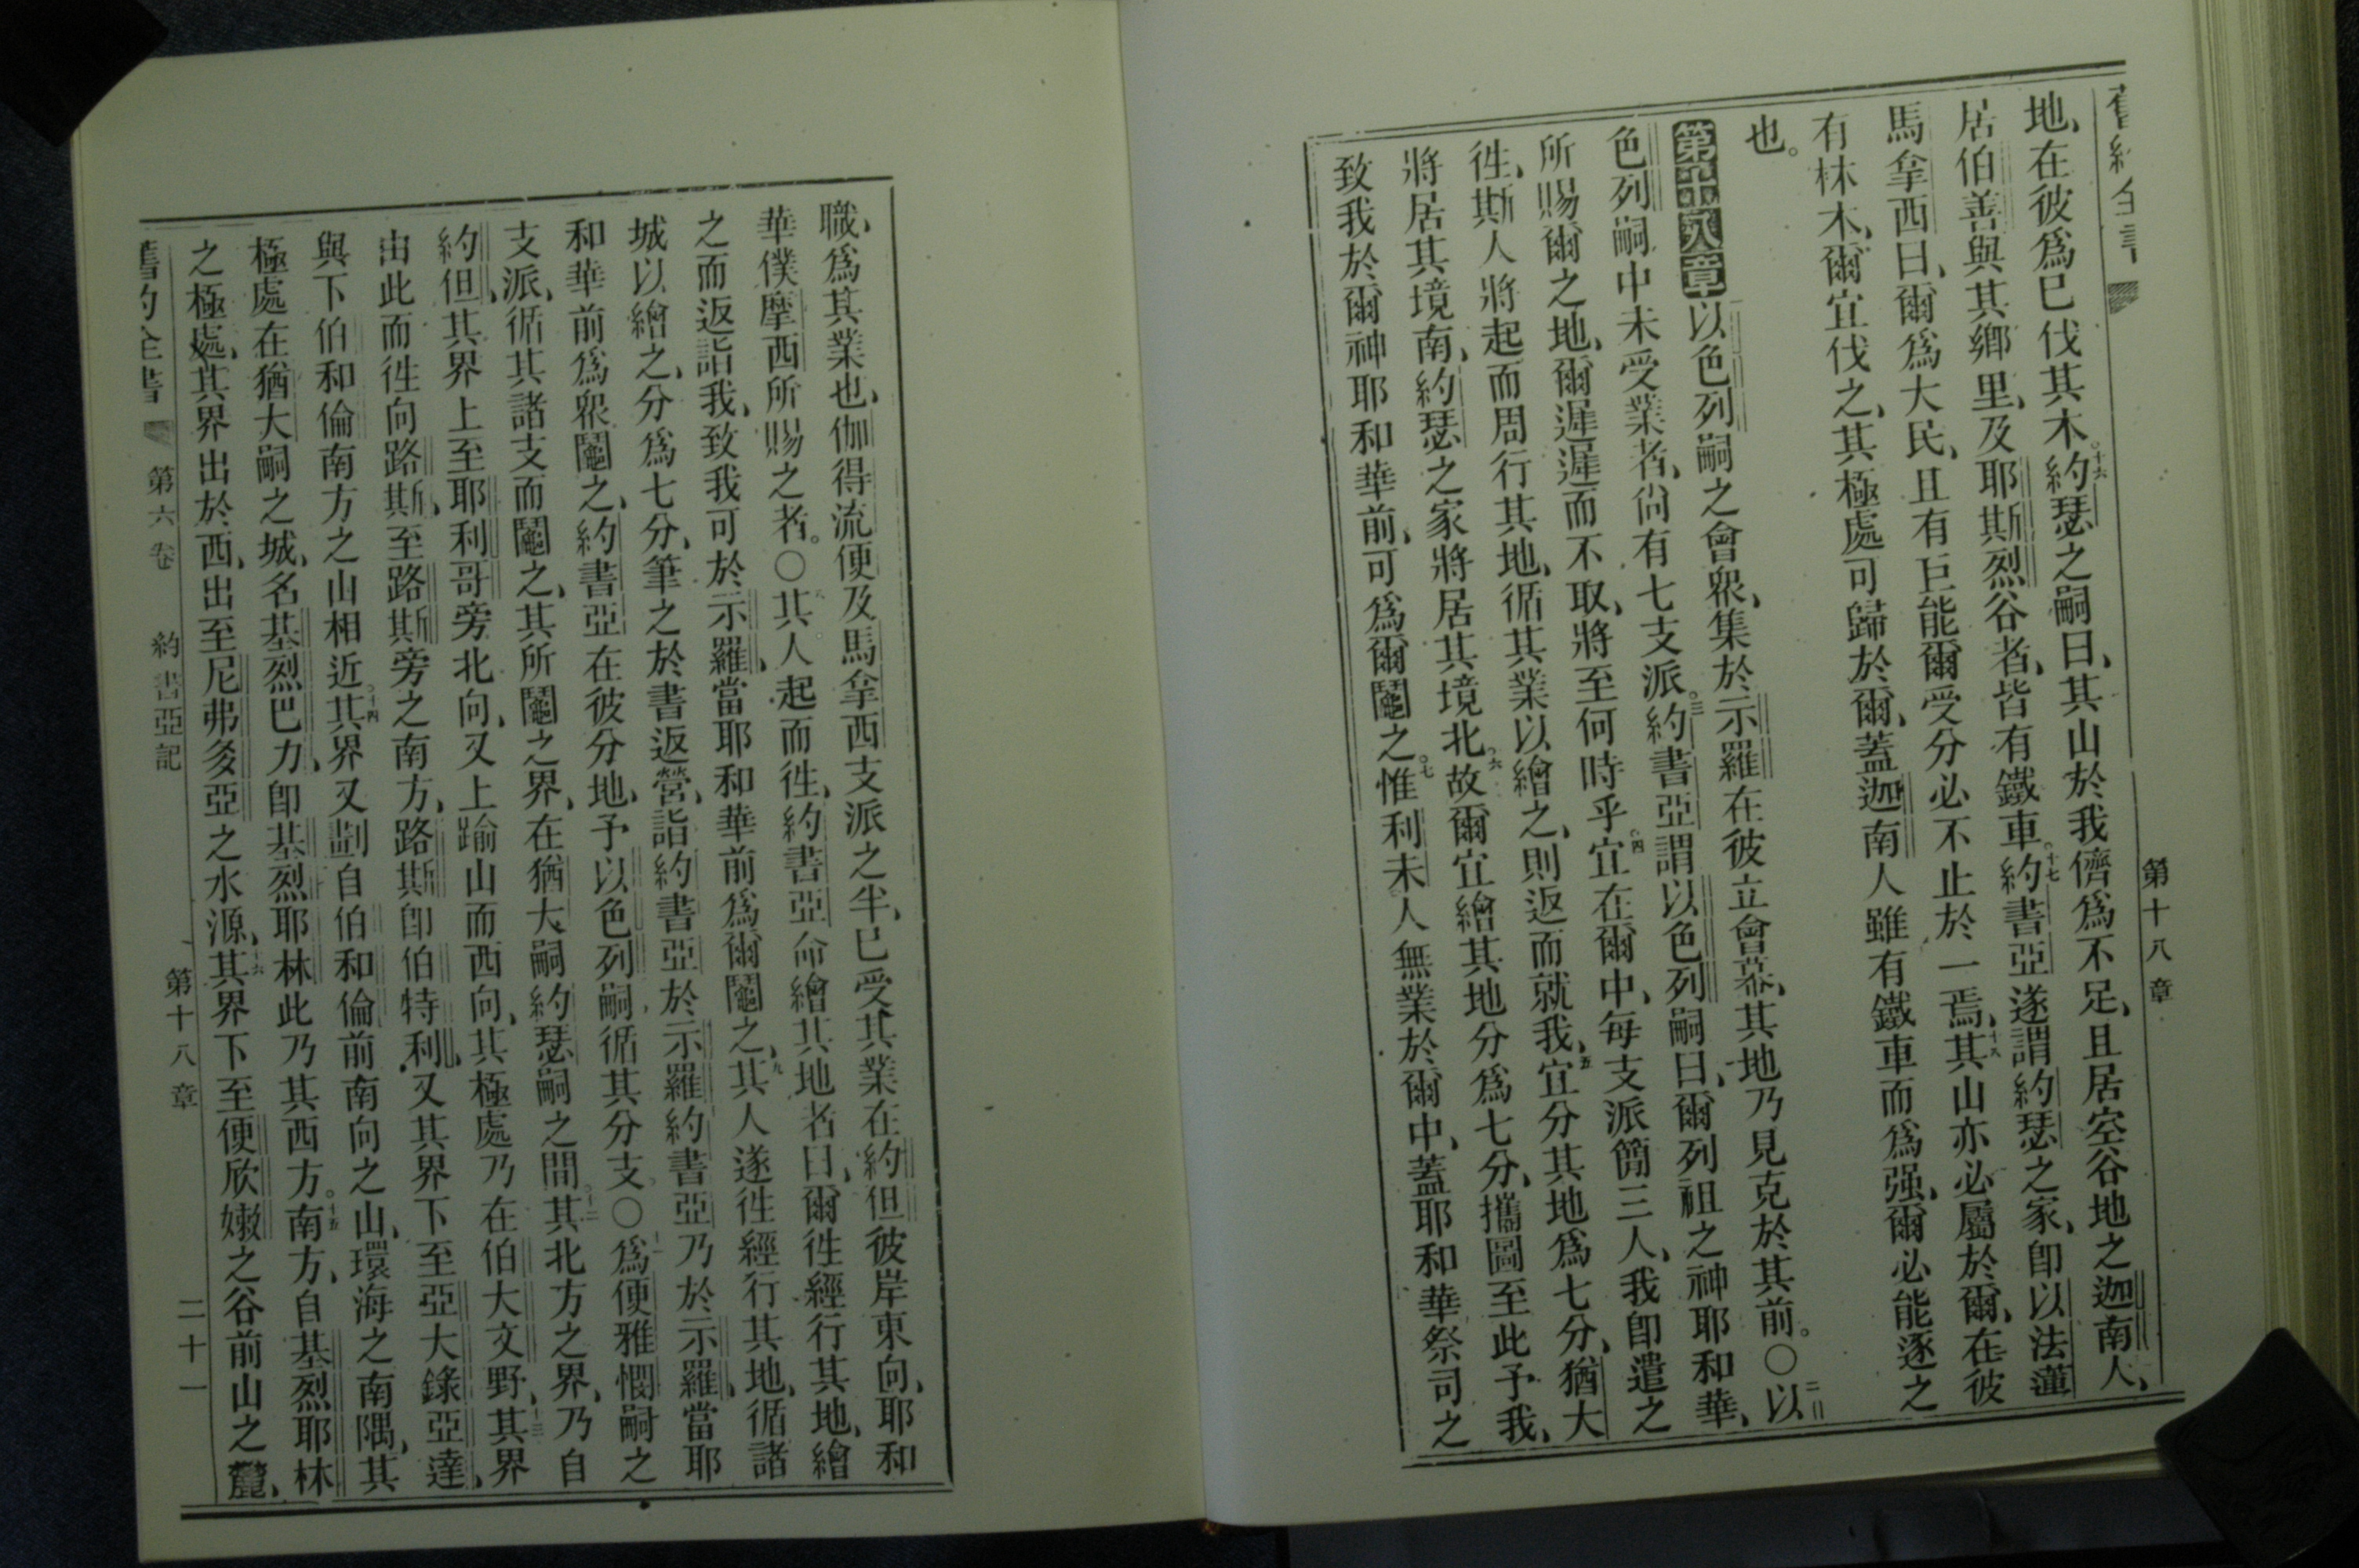 舊約全書 第十八章
地、在彼爲己伐其木。十六約瑟之嗣曰、其山於我儕爲不足、且居空谷地之迦南人、
居伯善與其鄉里、及耶斯烈谷者、皆有鐵車。十七約書亞遂謂約瑟之家、卽以法蓮
馬拿西曰、爾爲大民、且有巨能爾受分必不止於一焉、十八其山亦必屬於爾、在彼
有林木、爾宜伐之、其極處可歸於爾、蓋迦南人雖有鐵車而爲强、爾必能逐之
也。
第十八章以色列嗣之會衆、集於示羅在彼立會幕、其地乃見克於其前。〇二以
色列嗣中未受業者、尙有七支派。三約書亞謂以色列嗣曰、爾列祖之神耶和華、
所賜爾之地、爾遲遲而不取、將至何時乎。四宜在爾中、每支派簡三人、我卽遣之
徃、斯人將起而周行其地、循其業以繪之、則返而就我、五宜分其地爲七分、猶大
將居其境南、約瑟之家將居其境北。六故爾宜繪其地分爲七分、攜圖至此予我、
致我於爾神耶和華前、可爲爾鬮之。七惟利未人無業於爾中、蓋耶和華祭司之
職、爲其業也、伽得流便及馬拿西支派之半、已受其業在約但彼岸東向、耶和
華僕摩西所賜之者。〇八其人起而徃、約書亞命繪其地者曰、爾徃經行其地、繪
之而返詣我、致我可於示羅、當耶和華前爲爾鬮之、九其人遂徃經行其地、循諸
城以繪之、分爲七分、筆之於書返營、詣約書亞於示羅約書亞乃於示羅、當耶
和華前爲衆鬮之、約書亞在彼分地、予以色列嗣循其分支。〇十一爲便雅憫嗣之
支派、循其諸支而鬮之、其所鬮之界、在猶大嗣約瑟嗣之間。十二其北方之界、乃自
約但、其界上至耶利哥旁北向、又上踰山而西向、其極處乃在伯大文野、十三其界
由此而徃向路斯、至路斯旁之南方、路斯卽伯特利、又其界下至亞大錄亞達、
與下伯和倫南方之山相近。十四其界又劃自伯和倫前南向之山、環海之南隅、其
極處在猶大嗣之城、名基烈巴力、卽基烈耶林此乃其西方。十五南方、自基烈耶林
之極處、其界出於西、出至尼弗多亞之水源、十六其界下至便欣嫩之谷前山之麓、
舊約全書 第六卷 約書亞記 第十八章 二十一